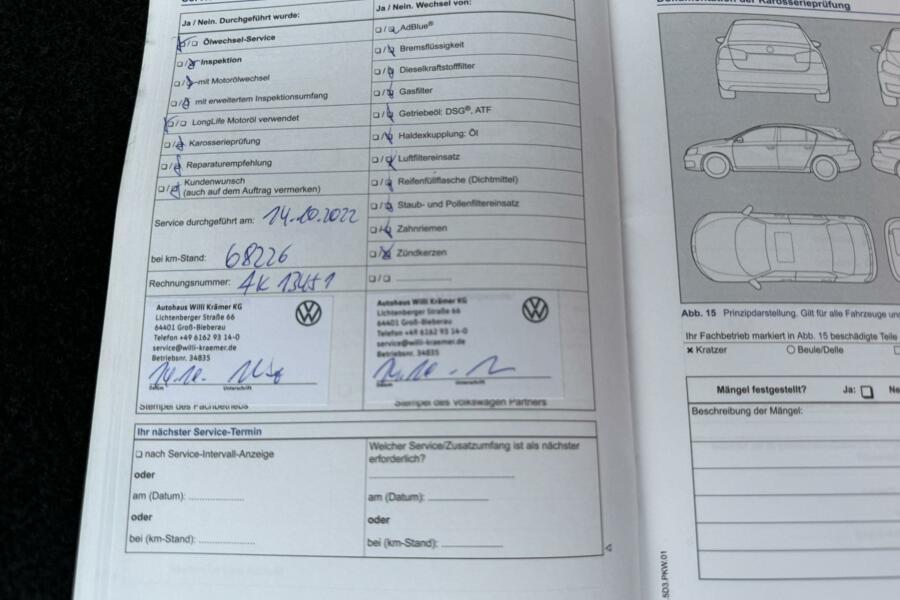 Ja / Nein. Durchgeführt wurde:
❏/❏ Ölwechsel-Service
❏/❏ Inspektion
❏/❏ mit Motorölwechsel
❏/❏ mit erweitertem Inspektionsumfang
❏/❏ LongLife Motoröl verwendet
❏/❏ Karosserieprüfung
❏/❏ Reparaturempfehlung
❏/❏ Kundenwunsch
(auch auf dem Auftrag vermerken)
Service durchgeführt am: 14.10.2022
bei km-Stand: 68226
Rechnungsnummer: AK 13451
Ja / Nein. Wechsel von:
❏/❏ AdBlue®
❏/❏ Bremsflüssigkeit
❏/❏ Dieselkraftstofffilter
❏/❏ Gasfilter
❏/❏ Getriebeöl: DSG®, ATF
❏/❏ Haldexkupplung: Öl
❏/❏ Luftfiltereinsatz
❏/❏ Reifenfüllflasche (Dichtmittel)
❏/❏ Staub- und Pollenfiltereinsatz
❏/❏ Zahnriemen
❏/❏ Zündkerzen
❏/❏
Autohaus Willi Krämer KG
Lichtenberger Straße 66
64401 Groß-Bieberau
Telefon +49 6162 93 14-0
service@willi-kraemer.de
Betriebsnr. 34835
14.10.
Datum Unterschrift
Stempel des Fachbetriebs
Autohaus Willi Krämer KG
Lichtenberger Straße 66
64401 Groß-Bieberau
Telefon +49 6162 93 14-0
service@willi-kraemer.de
Betriebsnr. 34835
14.10.
Datum Unterschrift
Stempel des Volkswagen Partners
Ihr nächster Service-Termin
❏ nach Service-Intervall-Anzeige
oder
am (Datum):
oder
bei (km-Stand):
Welcher Service/Zusatzumfang ist als nächster
erforderlich?
am (Datum):
oder
bei (km-Stand):
der Karosserieprüfung
Abb. 15 Prinzipdarstellung. Gilt für alle Fahrzeuge
Ihr Fachbetrieb markiert in Abb. 15 beschädigte Teile
× Kratzer ○ Beule/Delle
Mängel festgestellt? Ja: ❏ Ne
Beschreibung der Mängel:
5D3.PKW.01